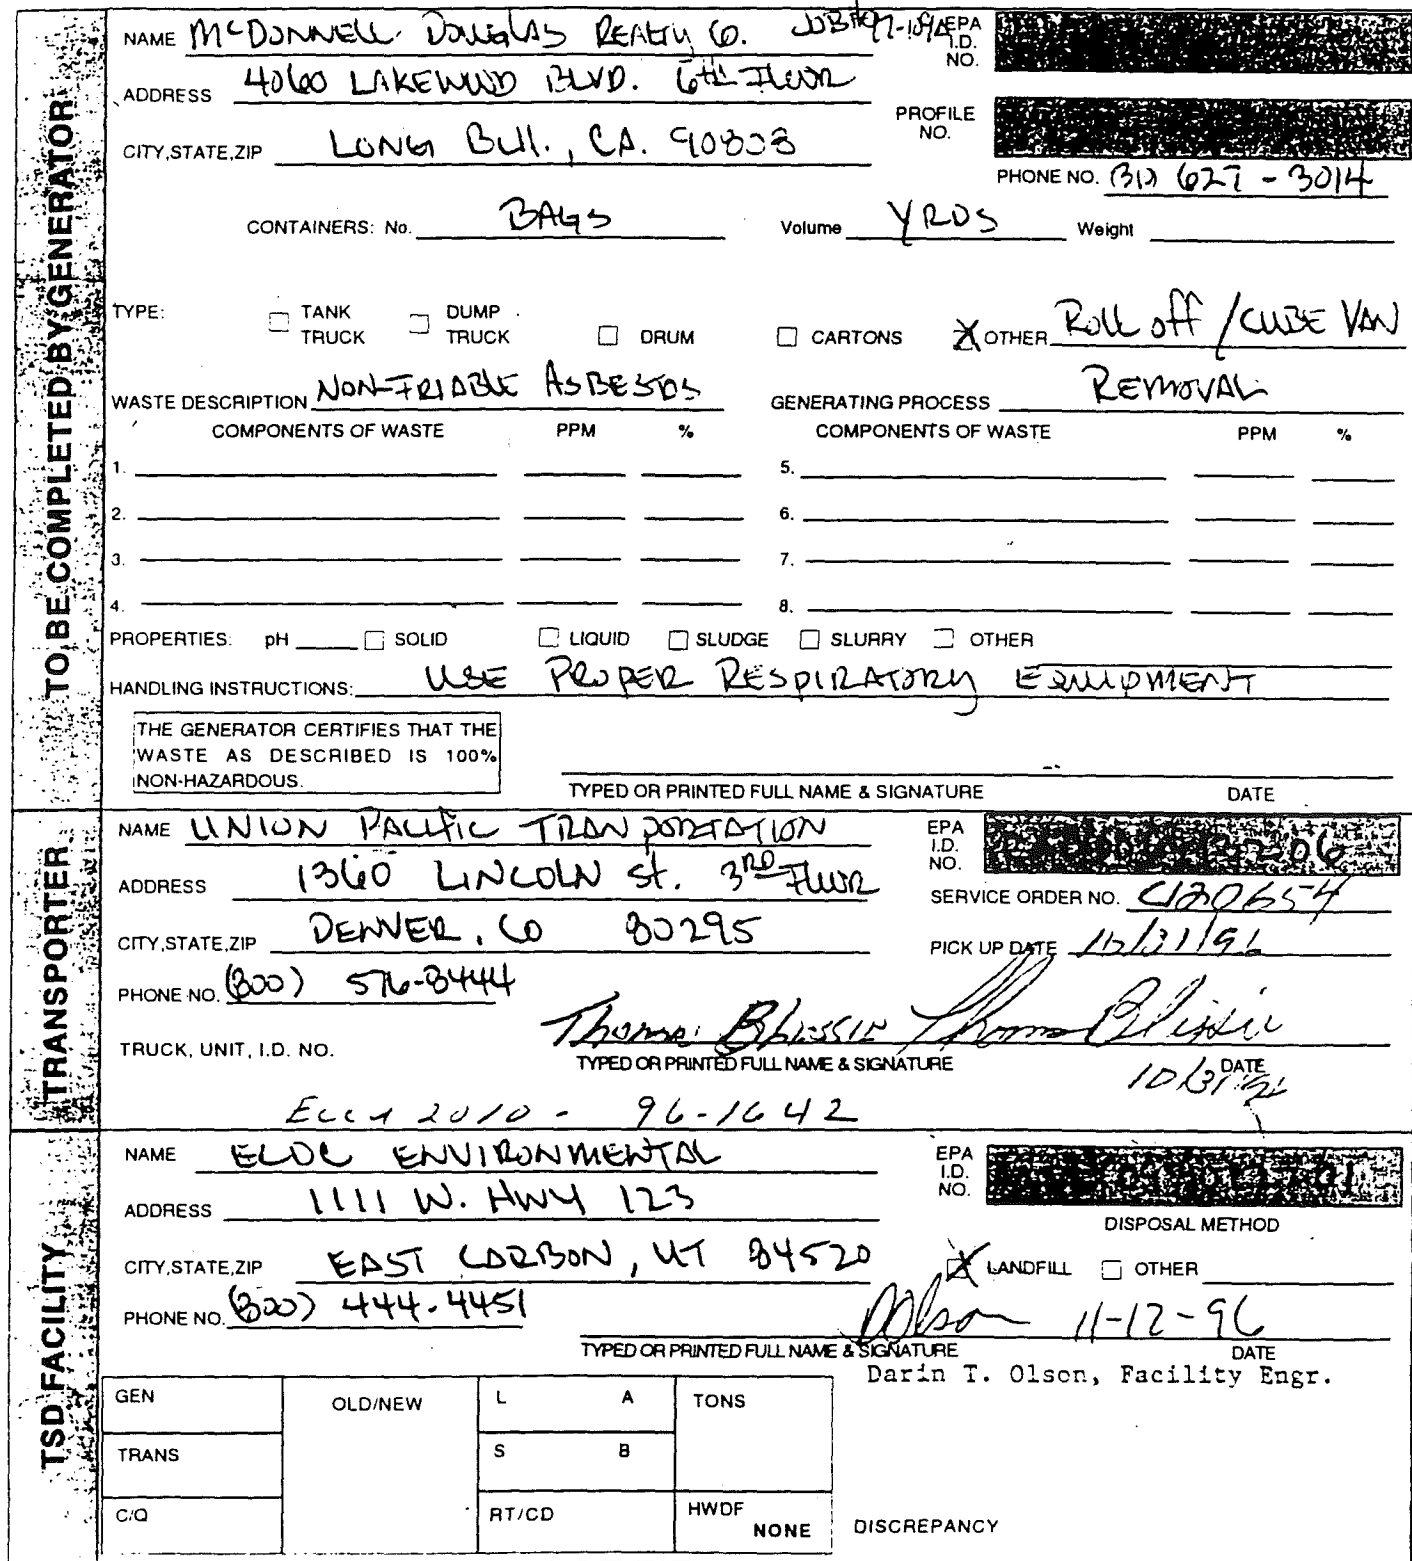 TO BE COMPLETED BY GENERATOR
NAME McDONNELL DOUGLAS REALTY CO. JOB# EPA I.D. NO.
ADDRESS 4060 LAKEWOOD BLVD. 6TH FLOOR
PROFILE NO.
CITY,STATE,ZIP LONG BCH., CA. 90808
PHONE NO. (310) 627-3014
CONTAINERS: No. BAGS Volume YRDS Weight
TYPE: TANK TRUCK DUMP TRUCK DRUM CARTONS X OTHER Roll off / CUBE VAN
WASTE DESCRIPTION NON-FRIABLE ASBESTOS GENERATING PROCESS REMOVAL
COMPONENTS OF WASTE PPM % COMPONENTS OF WASTE PPM %
1. 5.
2. 6.
3. 7.
4. 8.
PROPERTIES: pH SOLID LIQUID SLUDGE SLURRY OTHER
HANDLING INSTRUCTIONS: USE PROPER RESPIRATORY EQUIPMENT
THE GENERATOR CERTIFIES THAT THE
WASTE AS DESCRIBED IS 100%
NON-HAZARDOUS.
TYPED OR PRINTED FULL NAME & SIGNATURE DATE
TRANSPORTER
NAME UNION PACIFIC TRANPORTATION EPA I.D. NO.
ADDRESS 1360 LINCOLN St. 3RD FLOOR
SERVICE ORDER NO. C120654
CITY,STATE,ZIP DENVER, CO 80295
PICK UP DATE 10/31/96
PHONE NO. (800) 576-8444
Thomas Blissie
TRUCK, UNIT, I.D. NO.
TYPED OR PRINTED FULL NAME & SIGNATURE DATE
10/31/96
2010 - 96-1642
TSD FACILITY
NAME ECDC ENVIRONMENTAL EPA I.D. NO.
ADDRESS 1111 W. HWY 123
DISPOSAL METHOD
CITY,STATE,ZIP EAST CARBON, UT 84520 X LANDFILL OTHER
PHONE NO. (800) 444-4451
DOlson 11-12-96
TYPED OR PRINTED FULL NAME & SIGNATURE DATE
Darin T. Olson, Facility Engr.
GEN OLD/NEW L A TONS
TRANS S B
C/Q RT/CD HWDF NONE DISCREPANCY